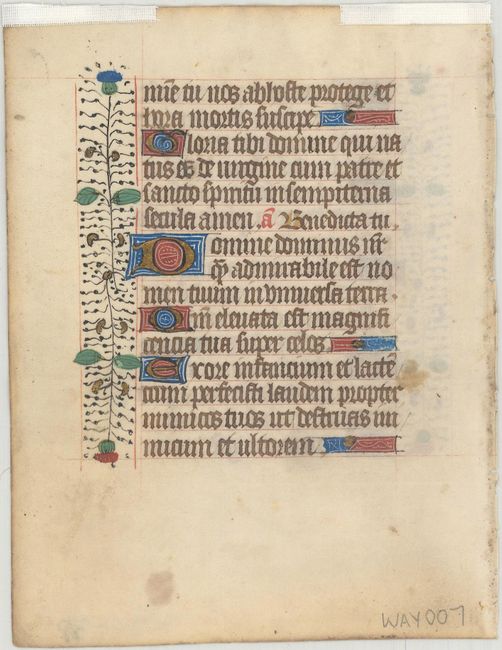 mie tu nos ab hoste protege et
hora mortis suscipe
Gloria tibi domine qui na
tus es de virgine cum patre et
sancto spiritu in sempiterna
secula amen . a Benedicta tu .
Domine dominus nr̄
q̄ admirabile est no
men tuum in vniuersa terra .
Qm̄ eleuata est magnifi
cencia tua super celos
Ex ore infancium et lactē
cium perfecisti laudem propter
inimicos tuos ut destruas ini
micum et ultorem
WAY007